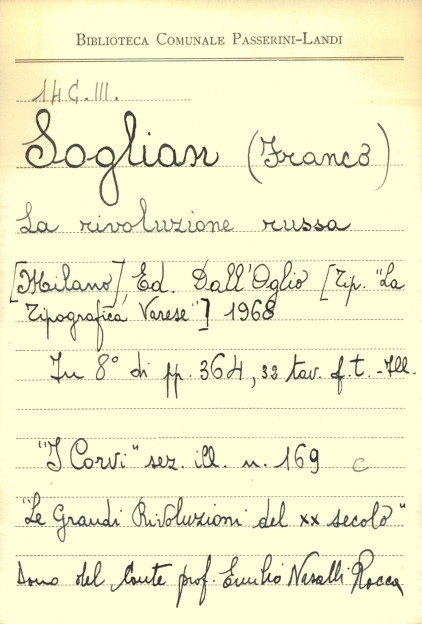 BIBLIOTECA COMUNALE PASSERINI-LANDI
14 G. III.
Soglian (Franco)
La rivoluzione russa
[Milano] Ed. Dall'Oglio [Tip. "La
Tipografica Varese"] 1968
In 8° di pp. 364, 32 tav. f. t. - Ill.
"I Corvi" sez. ill. n. 169 C
"Le Grandi Rivoluzioni del xx secolo"
Dono del Conte prof. Emilio Nasalli Rocca